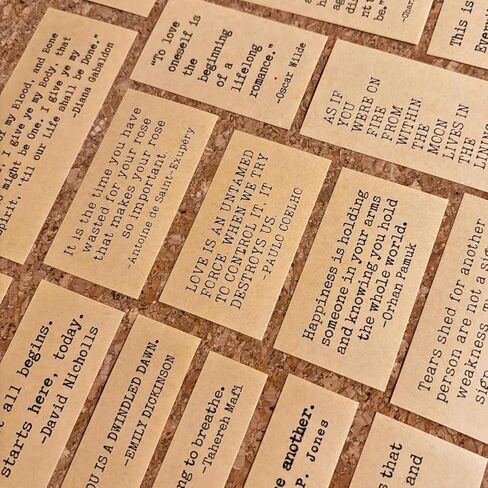 of my Blood, and Bone
I give ye my Body, that
might be One. I give ye my
spirit. 'til our Life shall be Done."
-Diana Gabaldon
"To love
oneself is
the beginning
of a
lifelong
romance."
-Oscar Wilde
be."
This is
AS IF
YOU
WERE ON
FIRE
FROM
WITHIN
THE
MOON
LIVES IN
THE
It is the time you have
wasted for your rose
that makes your rose
so important.
-Antoine de Saint-Exupéry
LOVE IS AN UNTAMED
FORCE. WHEN WE TRY
TO CONTROL IT, IT
DESTROYS US.
-PAULO COELHO
Happiness is holding
someone in your arms
and knowing you hold
the whole world.
-Orhan Pamuk
Tears shed for another
person are not a
weakness.
all begins.
starts here, today.
-David Nicholls
IS A DWINDLED DAWN.
-EMILY DICKINSON
to breathe.
-Tahereh Mafi
another.
P. Jones
that
and